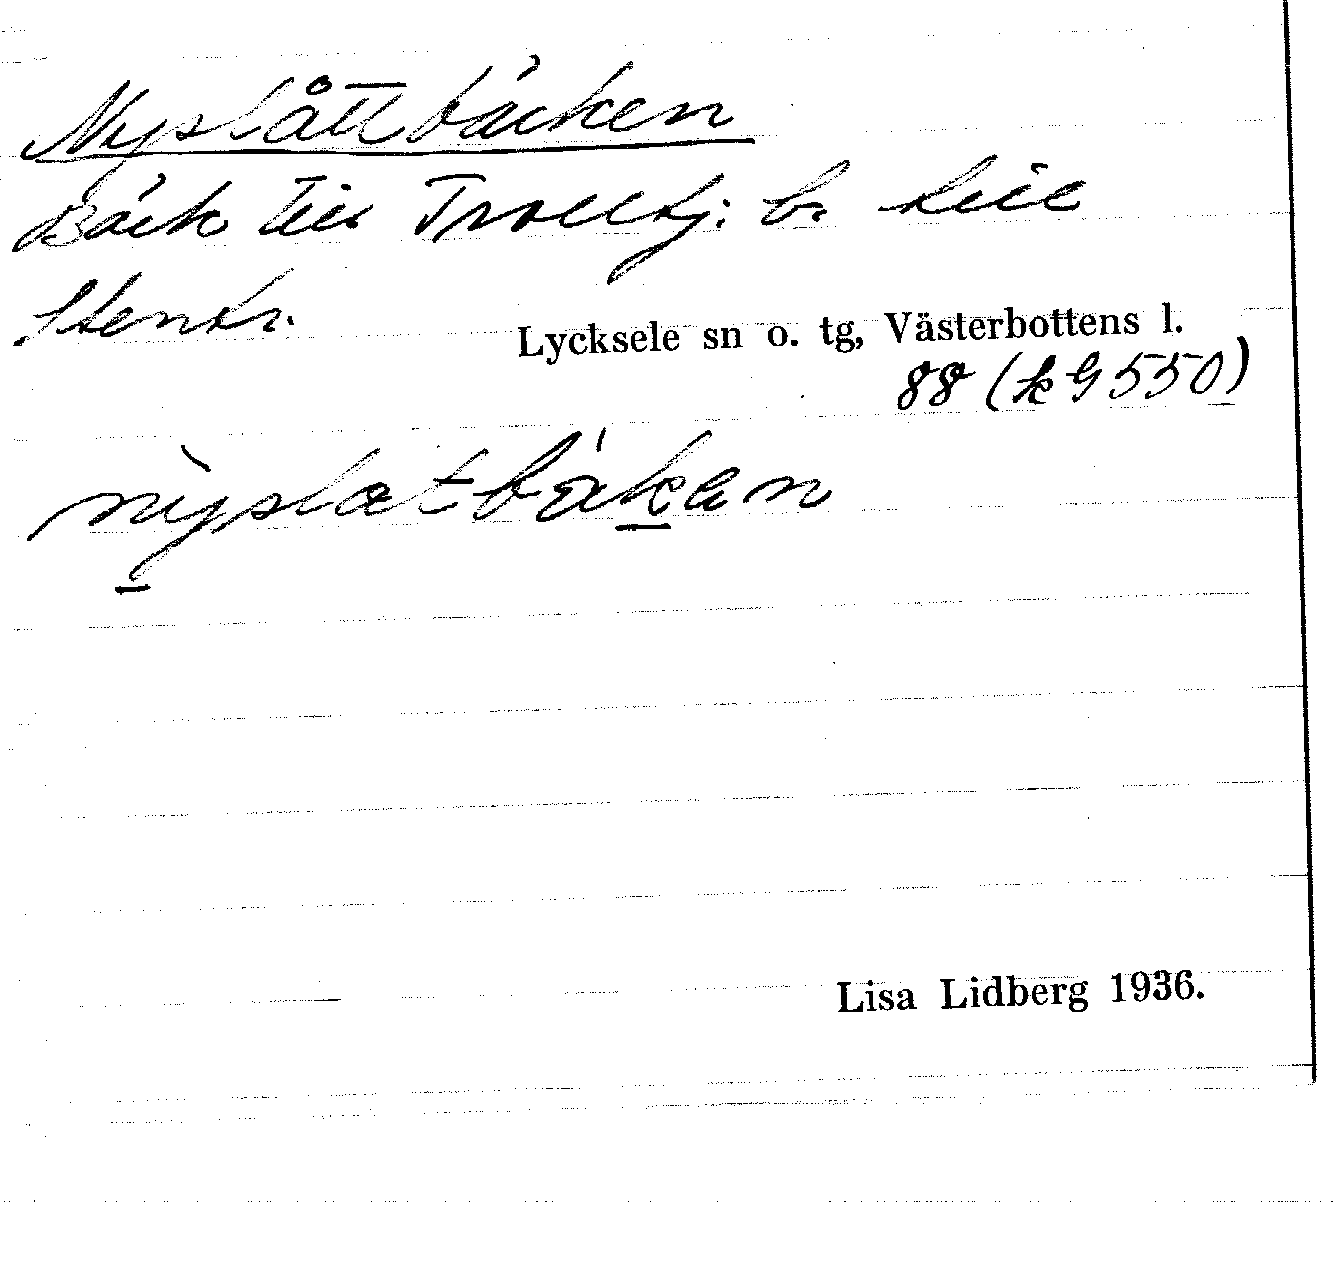 Nyslåttbäcken
Bäck till Trolltj: b. till
Stentr.
Lycksele sn o. tg, Västerbottens l.
88 (k G 550)
nỳslætbäken
Lisa Lidberg 1936.